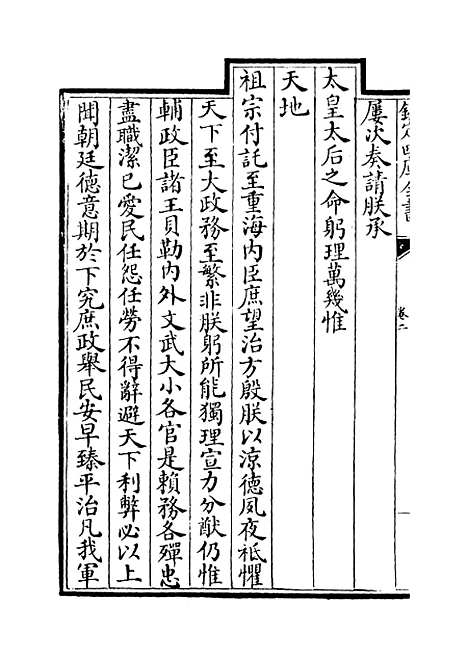 欽定四庫全書
卷二
屢次奏請朕承
太皇太后之命躬理萬幾惟
天地
祖宗付託至重海内臣庶望治方殷朕以涼德夙夜祗懼
天下至大政務至繁非朕躬所能獨理宣力分猷仍惟
輔政臣諸王貝勒内外文武大小各官是賴務各殫忠
盡職潔已愛民任怨任勞不得辭避天下利弊必以上
聞朝廷德意期於下究庶政舉民安早臻平治凡我軍